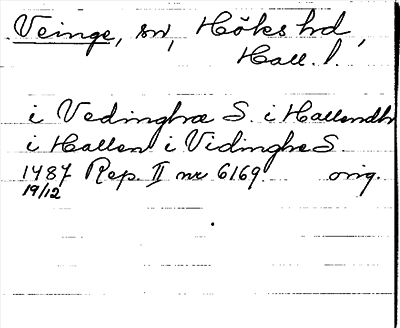 Veinge, sn, Höks hd,
Hall. l.
i Vedinghæ S. i Hallendh
i Hallen i Vidinghe S.
1487 Rep. II nr 6169 orig.
19/12